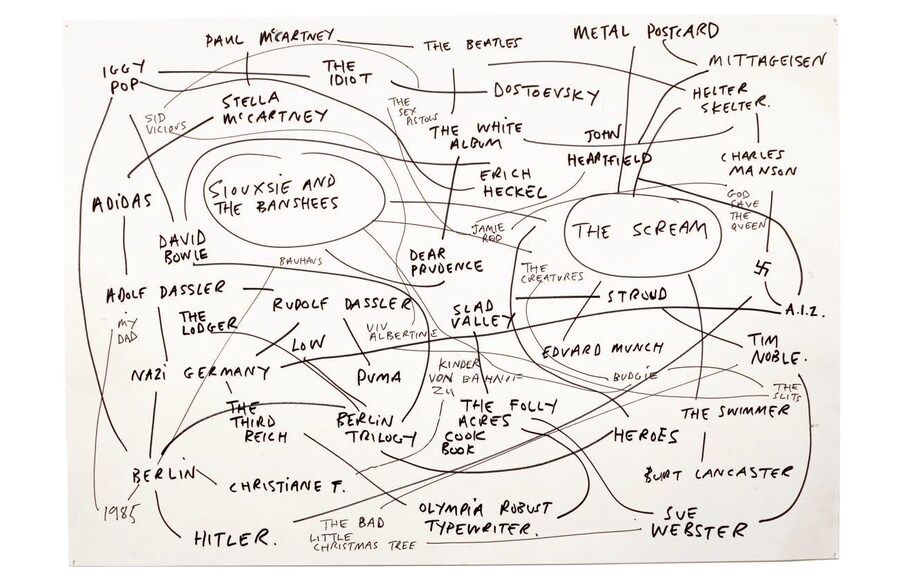 PAUL McCARTNEY
THE BEATLES
METAL POSTCARD
IGGY
POP
THE
IDIOT
MITTAGEISEN
DOSTOEVSKY
HELTER
SKELTER.
STELLA
McCARTNEY
THE
SEX
PISTOLS
SID
VICIOUS
THE WHITE
ALBUM
JOHN
HEARTFIELD
CHARLES
MANSON
ERICH
HECKEL
ADIDAS
SIOUXSIE AND
THE BANSHEES
GOD
SAVE
THE
QUEEN
JAMIE
REID
THE SCREAM
DAVID
BOWIE
BAUHAUS
DEAR
PRUDENCE
THE
CREATURES
ADOLF DASSLER
RUDOLF DASSLER
STROUD
A.I.Z.
MY
DAD
THE
LODGER
VIV
ALBERTINE
SLAD
VALLEY
LOW
EDVARD MUNCH
TIM
NOBLE.
NAZI GERMANY
PUMA
KINDER
VON BAHNHOF
ZU
BUDGIE
THE
SLITS
THE
THIRD
REICH
BERLIN
TRILOGY
THE FOLLY
ACRES
COOK
BOOK
THE SWIMMER
HEROES
BERLIN
CHRISTIANE F.
BURT LANCASTER
1985
OLYMPIA ROBUST
TYPEWRITER.
SUE
WEBSTER
HITLER.
THE BAD
LITTLE
CHRISTMAS TREE